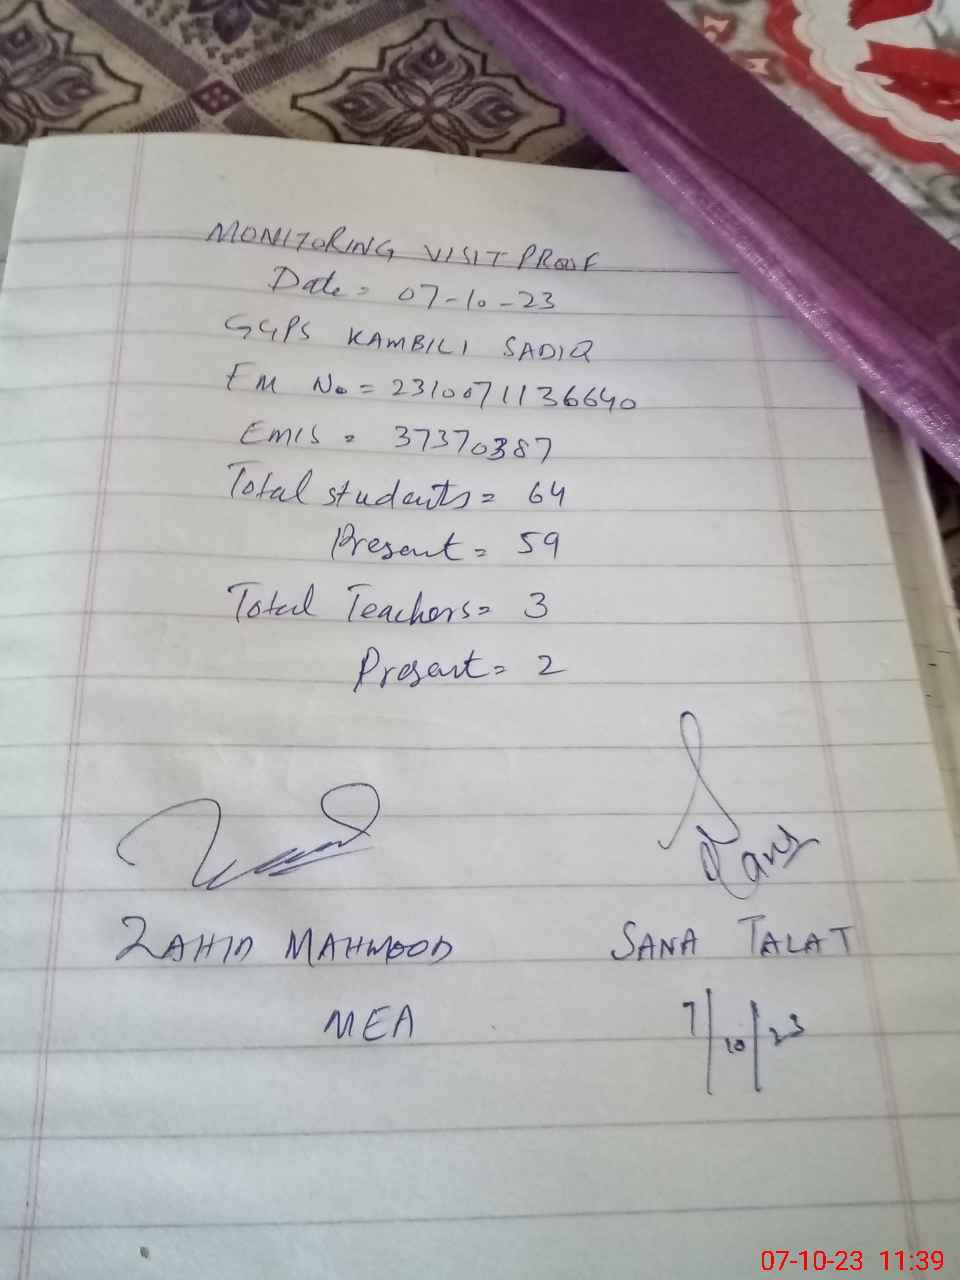 MONITORING VISIT PROOF
Date = 07-10-23
GGPS KAMBILI SADIQ
EM No = 2310071136640
EMIS = 37370387
Total students = 64
Present = 59
Total Teachers = 3
Present = 2
Sana
ZAHID MAHMOOD
SANA TALAT
MEA
7/10/23
07-10-23 11:39